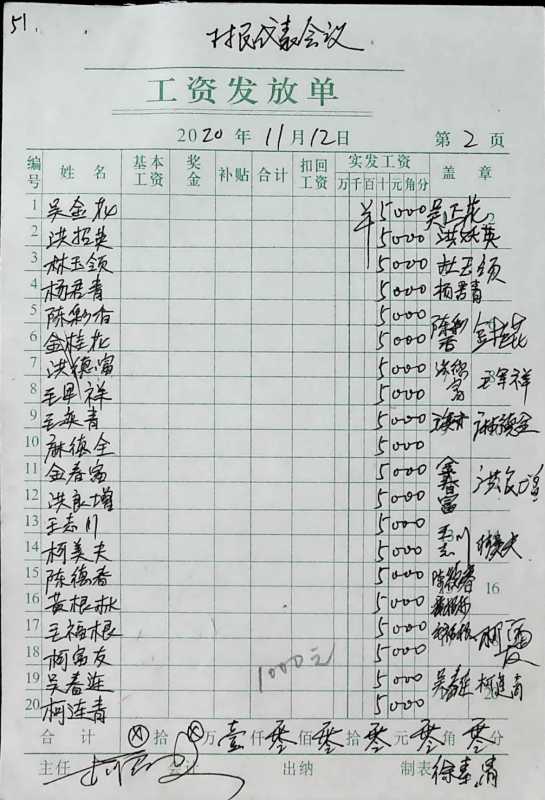 51.
村民代表会议
工资发放单
2020年11月12日 第2页
编号 姓名 基本工资 奖金 补贴 合计 扣回工资 实发工资 盖章
万千百十元角分
1 吴金花 5000
2 洪招英 5000 洪招英
3 林玉领 5000 林玉领
4 杨君青 5000 杨君青
5 陈彩香 5000 陈彩香
6 金桂花 5000 金桂花
7 洪德富 5000 洪德富
8 王军祥 5000 王军祥
9 王焕青 5000
10 麻德全 5000 麻德全
11 金春富 5000 金春富
12 洪良增 5000 洪良增
13 王志川 5000 王志川
14 柯美夫 5000 柯美夫
15 陈德春 5000 陈德春
16 黄根林 5000 16
17 王福根 5000 王福根
18 柯富友 5000 柯富友
19 吴春莲 5000 吴春莲
20 柯连青 5000 柯连青
1000元
合计 ⊗拾⊗万壹仟零佰零拾零元零角零分
主任 会计 出纳 制表 徐素清